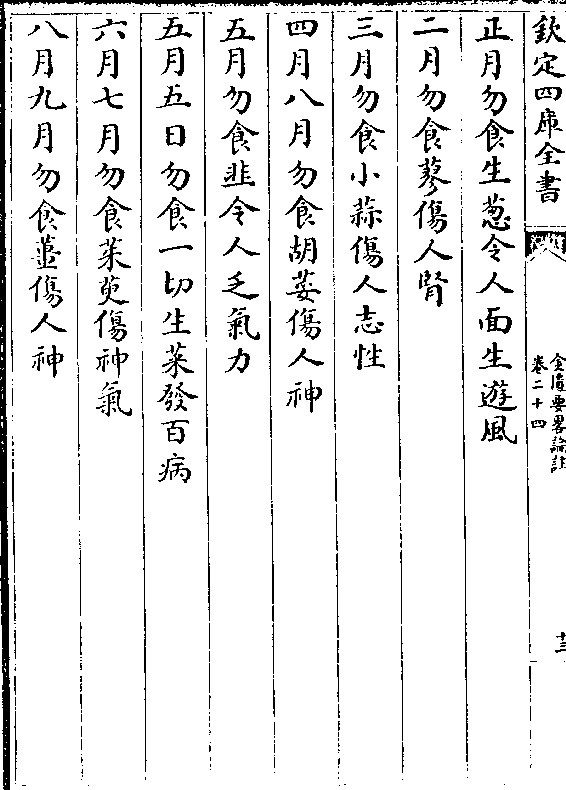 欽定四庫全書
金匱要畧論註
卷二十四
十三
正月勿食生葱令人面生遊風
二月勿食蓼傷人腎
三月勿食小蒜傷人志性
四月八月勿食胡荽傷人神
五月勿食韭令人乏氣力
五月五日勿食一切生菜發百病
六月七月勿食茱萸傷神氣
八月九月勿食薑傷人神